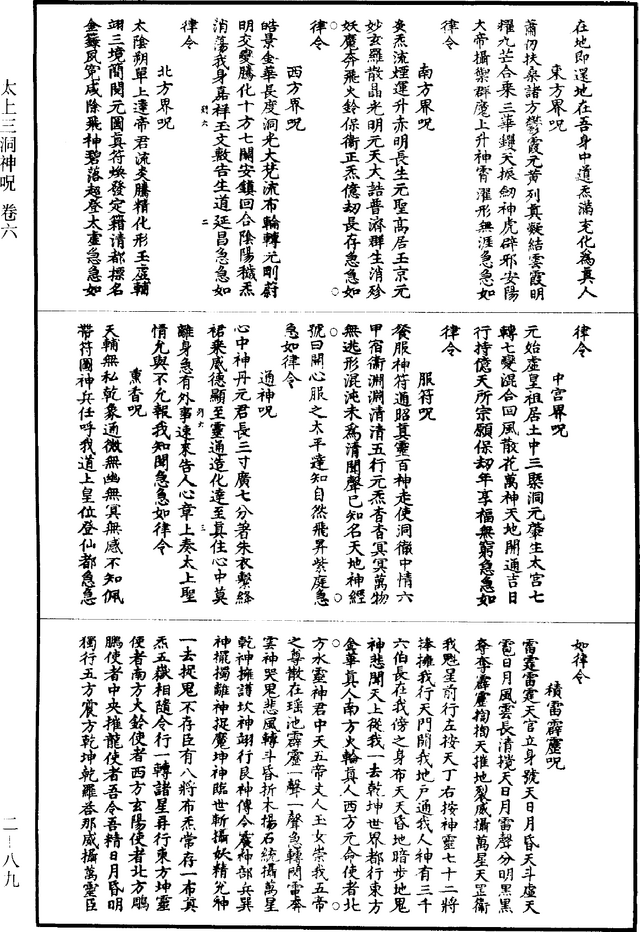 太上三洞神呪 卷六
二－八九
在地即還地在吾身中道炁滿充化為真人
東方界呪
蕭仞扶桑諸方鬱霞元黄列真凝結雲霞明
耀九芒合乘三華鑊天振劒神虎辟邪安陽
大帝攝禦群魔上升神霄濯形無涯急急如
律令
南方界呪
炎炁流煙運升赤明長生元聖高居玉京元
妙玄羅散晶光明元天大誥普濟群生消殄
妖魔奔飛火鈴保衛正炁億劫長存急急如
律令
西方界呪
皓景金華長庚洞光大梵流布輪轉元剛蔚
明交變騰化十方七關安鎮回合陰陽穢炁
消蕩我身嘉祥玉文敷告生道延昌急急如
律令
北方界呪
太陰朔單上達帝君流炎騰精化形玉虛輔
翊三境簡閱元圖真符煥發定籍清都標名
金籙夙寃咸除飛神碧落超登太虛急急如
律令
中宫界呪
元始虛皇祖居土中三槩洞元肇生太宫七
轉七變混合回風散花萬神天地開通吉日
行持億天所宗願保劫年享福無窮急急如
律令
服符呪
餐服神符通昭真靈百神走使洞徹中情六
甲宿衛淵淵清清五行元炁杳杳冥冥萬物
無逃形混沌未為清聞聲已知名天地神經
號曰開心服之太平達知自然飛昇紫庭急
急如律令
通神呪
心中神丹元君長三寸廣七分著朱衣繫絳
裙乘威德顯至靈通造化達至真住心中莫
離身急有外事速來告人心章上奏太上聖
情允與不允報我知聞急急如律令
熏香呪
天輔無私乾象通微無幽無冥無感不知佩
帶符圖神兵任呼我道上皇位登仙都急急
如律令
積雷霹靂呪
雷霆雷霆天官立身號天日月昏天斗虛天
雹日月風雲長清攪天日月雷聲分明黑黑
奪奪霹靂掏掏天摧地裂威攝萬星天罡衛
我魁星前行左按天丁右按神靈七十二將
捧擁我行天門開我地戸通我人神有三千
六伯長在我傍之身布天天昏地暗步地鬼
神悲聞天上從我一去乾坤世界都行東方
金華真人南方火輪真人西方元命使者北
方水靈神君中天五帝丈人玉女崇我五帝
之尊散在瑶池霹靂一聲一聲急轉閃電奔
雲神哭鬼悲風轉斗昏折木揚石統攝萬星
乾神擁護坎神翊行艮神傳令震神部兵巽
神擺獨離神捉魔坤神臨世斬攝妖精兊神
一去捉鬼不存臣有八將布炁常存一布真
炁五嶽相隨令行一轉諸星再行東方坤靈
使者南方大鈴使者西方玄陽使者北方鵬
鵬使者中央摧龍使者吾令吾精日月昏明
獨行五方震方乾坤乾羅荅那威攝萬靈臣